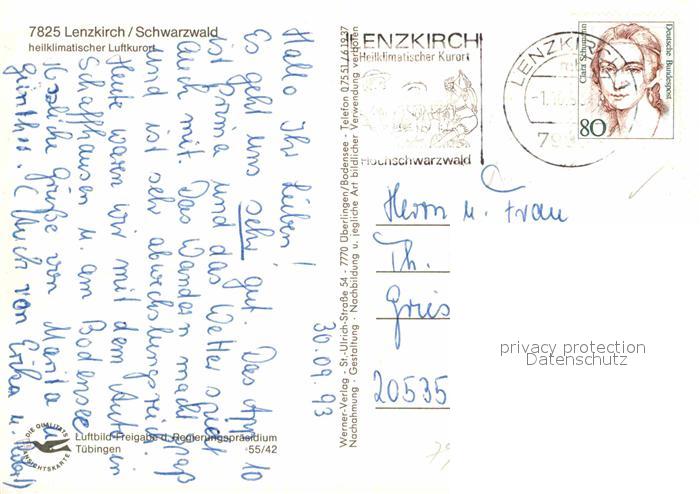 7825 Lenzkirch/Schwarzwald
heilklimatischer Luftkurort
30.09.93
Hallo Ihr Lieben!
Es geht uns sehr gut. Das App. 10
ist prima und das Wetter spielt
auch mit. Das Wandern macht Spaß
und ist sehr abwechslungsreich.
Heute waren wir mit dem Auto in
Schaffhausen u. am Bodensee.
Herzliche Grüße von Marita u.
Günther. (Auch von Erika u.
Luftbild-Freigabe d. Regierungspräsidium
Tübingen 55/42
DIE QUALITÄTS
ANSICHTSKARTE
Werner-Verlag · St.-Ulrich-Straße 54 - 7770 Überlingen/Bodensee - Telefon 07551/61937
Nachahmung · Gestaltung · Nachbildung u. jegliche Art bildlicher Verwendung verboten
LENZKIRCH
Heilklimatischer Kurort
Hochschwarzwald
LENZKIRCH
Clara Schumann
Deutsche Bundespost
80
Herrn u. Frau
Th.
Gries
20535
privacy protection
Datenschutz